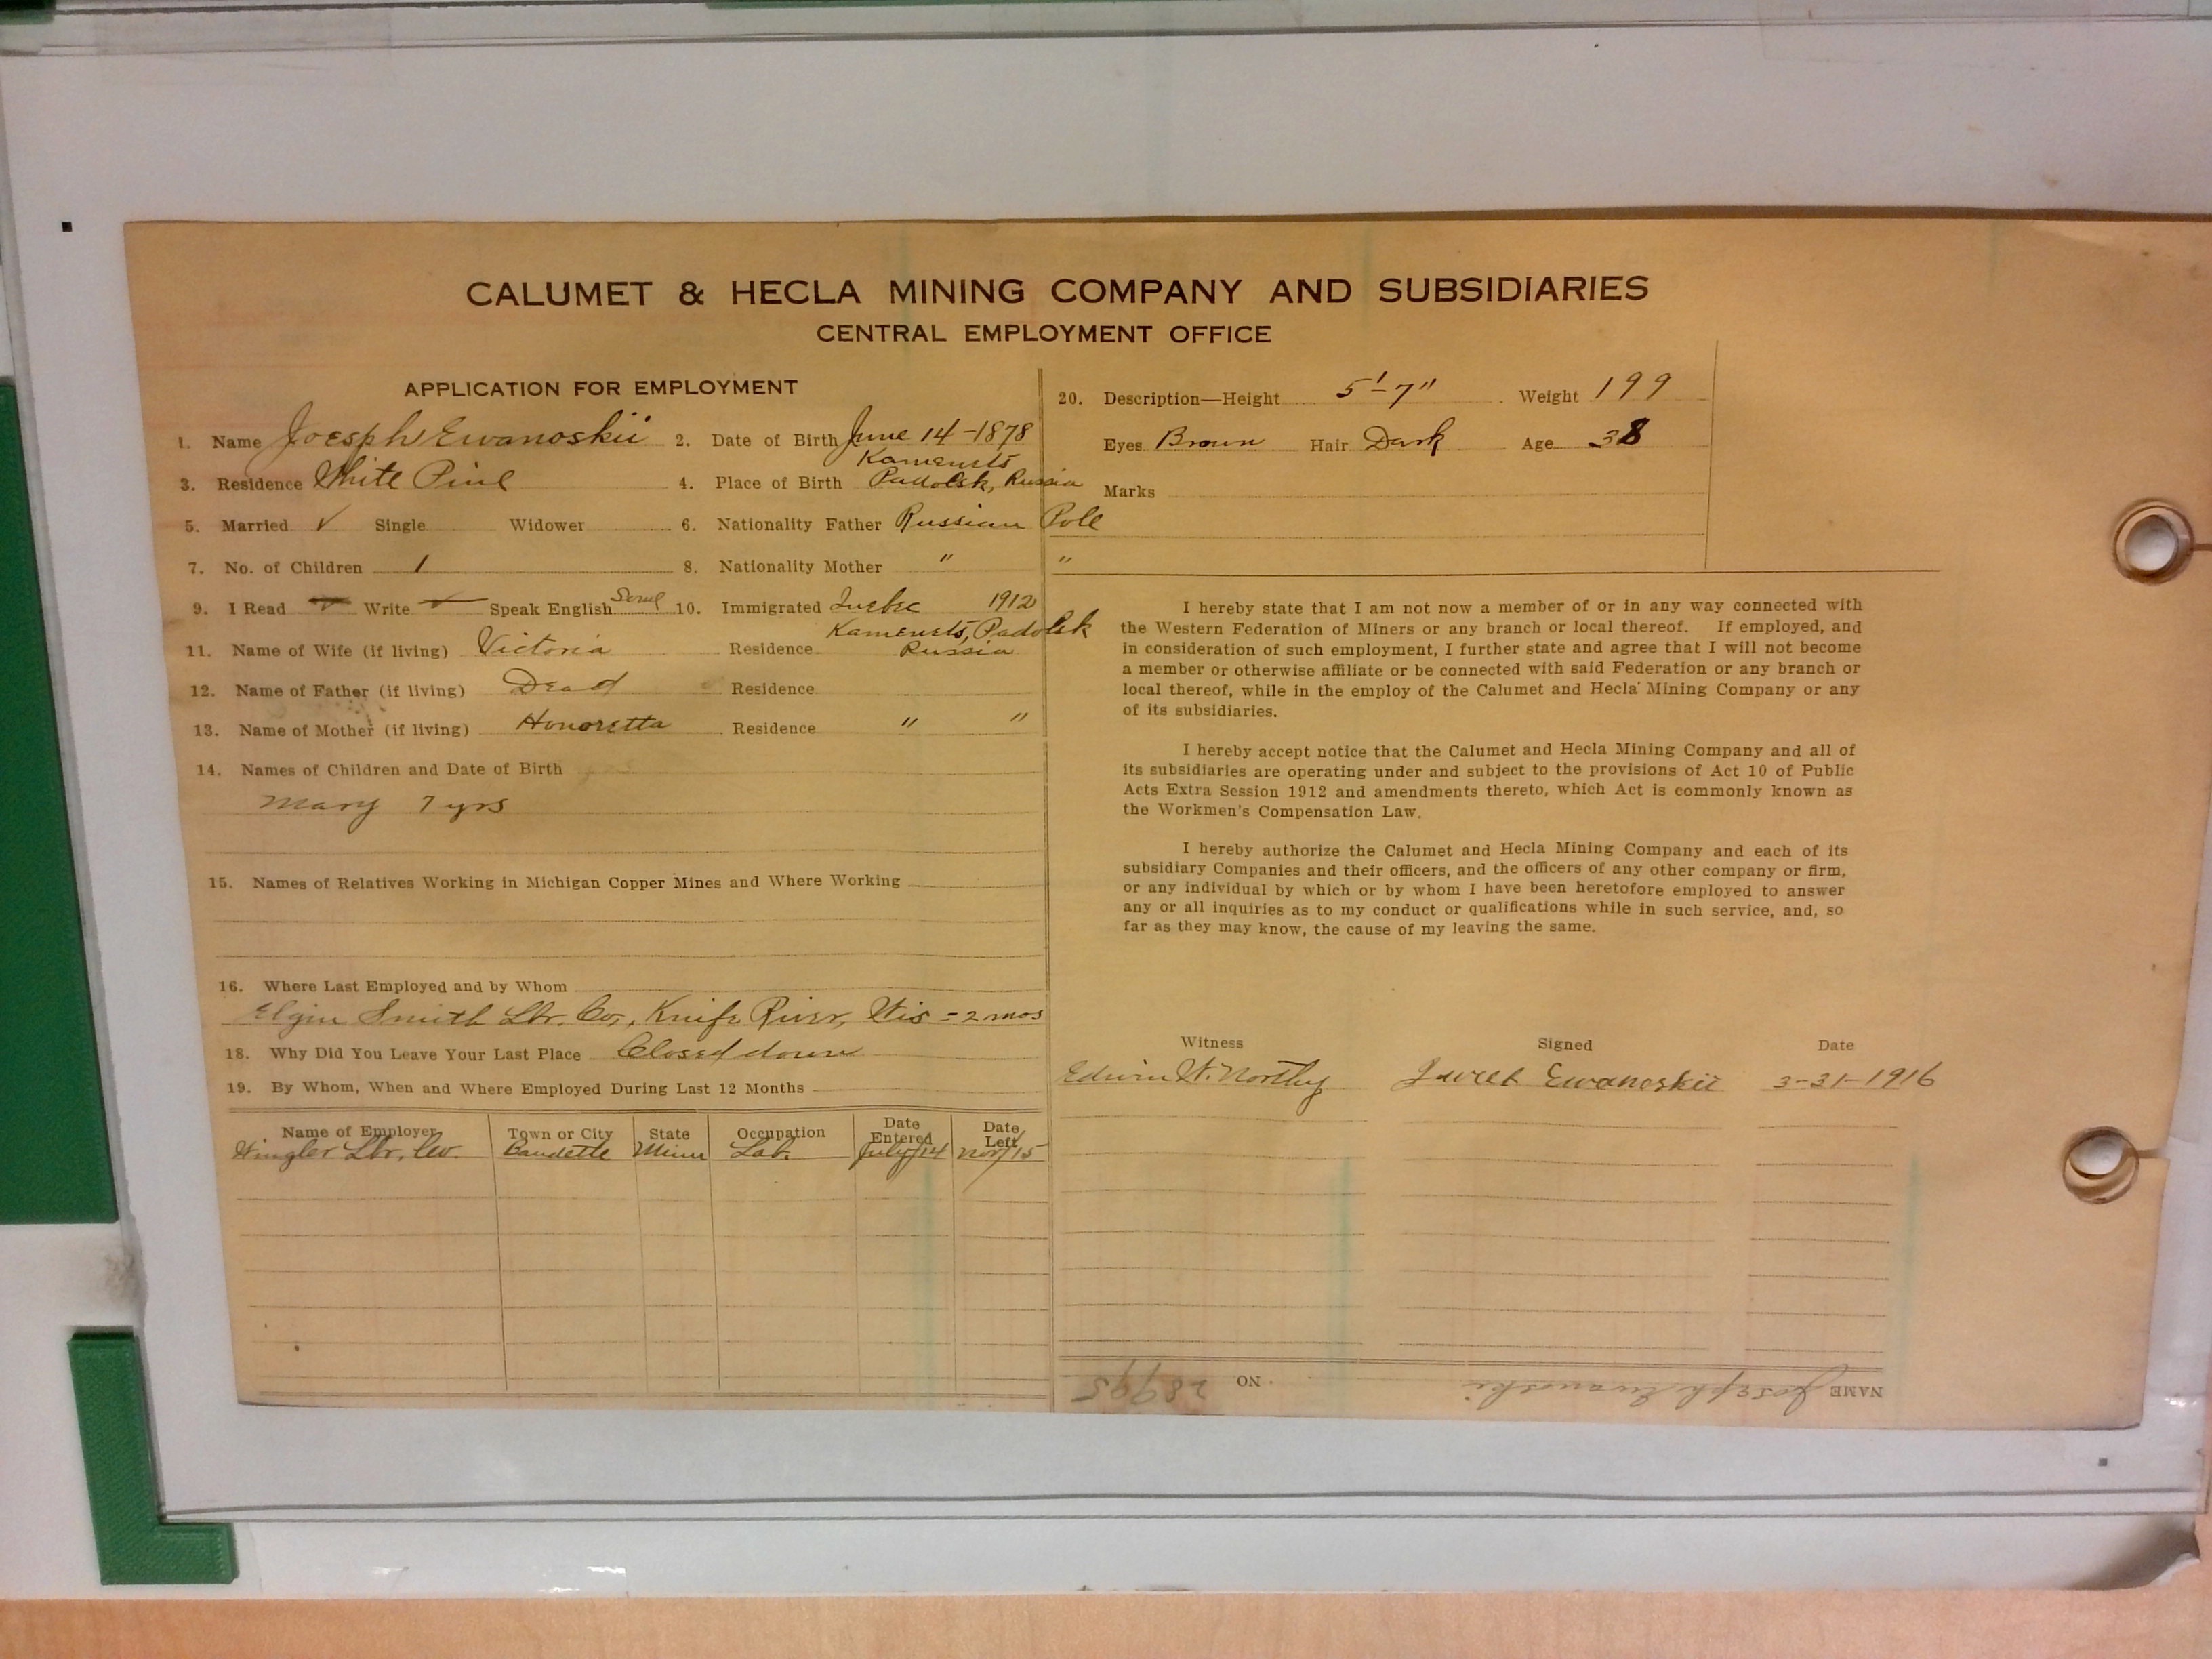 CALUMET & HECLA MINING COMPANY AND SUBSIDIARIES
CENTRAL EMPLOYMENT OFFICE
APPLICATION FOR EMPLOYMENT
1. Name Joesph Ewanoskii 2. Date of Birth June 14-1878
3. Residence White Pine 4. Place of Birth Kamenets
Padolsk, Russia
5. Married ✓ Single Widower 6. Nationality Father Russian Pole
7. No. of Children 1 8. Nationality Mother " "
9. I Read ✓ Write ✓ Speak English Some 10. Immigrated Quebec 1912
11. Name of Wife (if living) Victoria Residence Kamenets, Padolsk
Russia
12. Name of Father (if living) Dead Residence
13. Name of Mother (if living) Honoretta Residence " "
14. Names of Children and Date of Birth
Mary 7 yrs
15. Names of Relatives Working in Michigan Copper Mines and Where Working
16. Where Last Employed and by Whom
Elgin Smith Lbr. Co., Knife River, Wis = 2 mos
18. Why Did You Leave Your Last Place Closed down
19. By Whom, When and Where Employed During Last 12 Months
Name of Employer Town or City State Occupation Date Entered Date Left
Wingler Lbr. Co. Baudette Minn Lab. July/14 Nov/15
20. Description—Height 5'-7" Weight 199
Eyes Brown Hair Dark Age 38
Marks
I hereby state that I am not now a member of or in any way connected with
the Western Federation of Miners or any branch or local thereof. If employed, and
in consideration of such employment, I further state and agree that I will not become
a member or otherwise affiliate or be connected with said Federation or any branch or
local thereof, while in the employ of the Calumet and Hecla Mining Company or any
of its subsidiaries.
I hereby accept notice that the Calumet and Hecla Mining Company and all of
its subsidiaries are operating under and subject to the provisions of Act 10 of Public
Acts Extra Session 1912 and amendments thereto, which Act is commonly known as
the Workmen's Compensation Law.
I hereby authorize the Calumet and Hecla Mining Company and each of its
subsidiary Companies and their officers, and the officers of any other company or firm,
or any individual by which or by whom I have been heretofore employed to answer
any or all inquiries as to my conduct or qualifications while in such service, and, so
far as they may know, the cause of my leaving the same.
Witness Signed Date
Edwin W. Northy Ewanoskii 3-31-1916
NAME Joseph Ewanoski NO. 28995